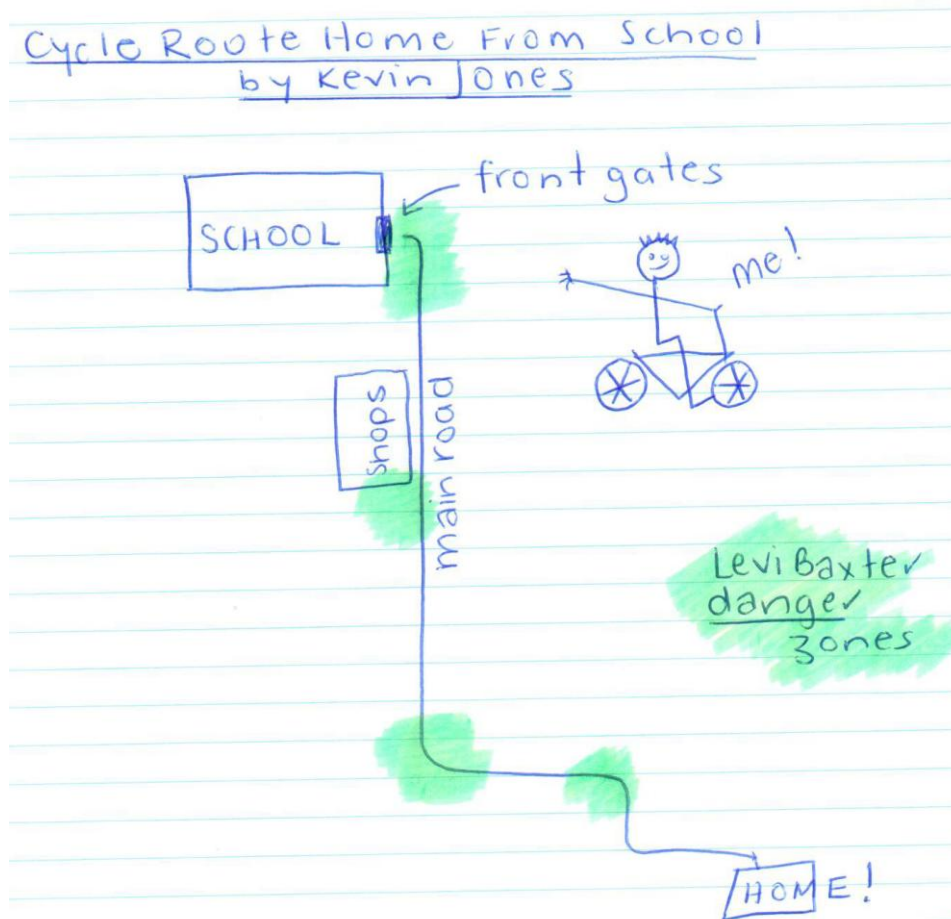 Cycle Roote Home From School
by Kevin Jones
front gates
SCHOOL
me!
Shops
main road
Levi Baxter
danger
zones
HOME!